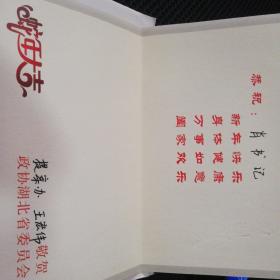 恭祝：
肖书记
新年快乐
身体健康
万事如意
阖家欢乐
蛇年大吉
提案办 王宏伟 敬贺
政协湖北省委员会